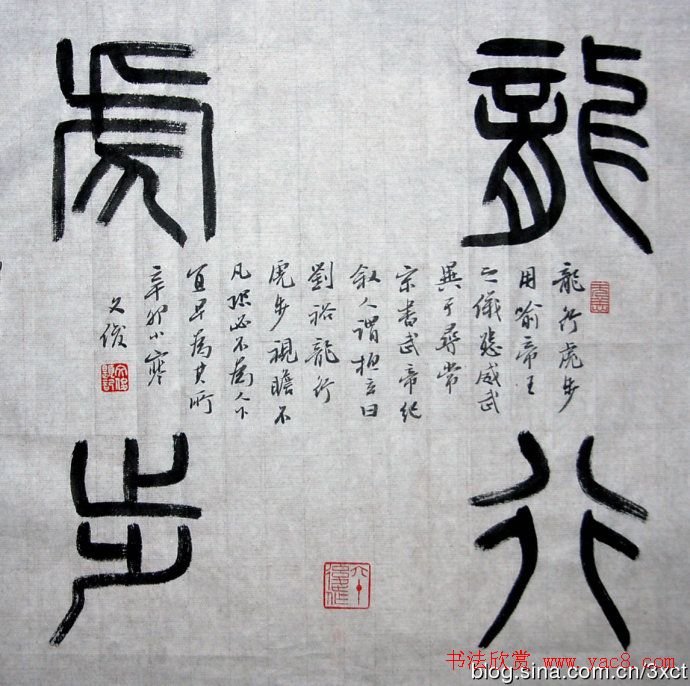 龍行
虎步
龍行虎步
用喻帝王
之儀態威武
異于尋常
宋書武帝紀
叙人謂桓玄曰
劉裕龍行
虎步視瞻不
凡恐必不為人下
宜早為其所
辛卯小寒
文俊
书法欣赏 www.yac8.com
blog.sina.com.cn/3xct